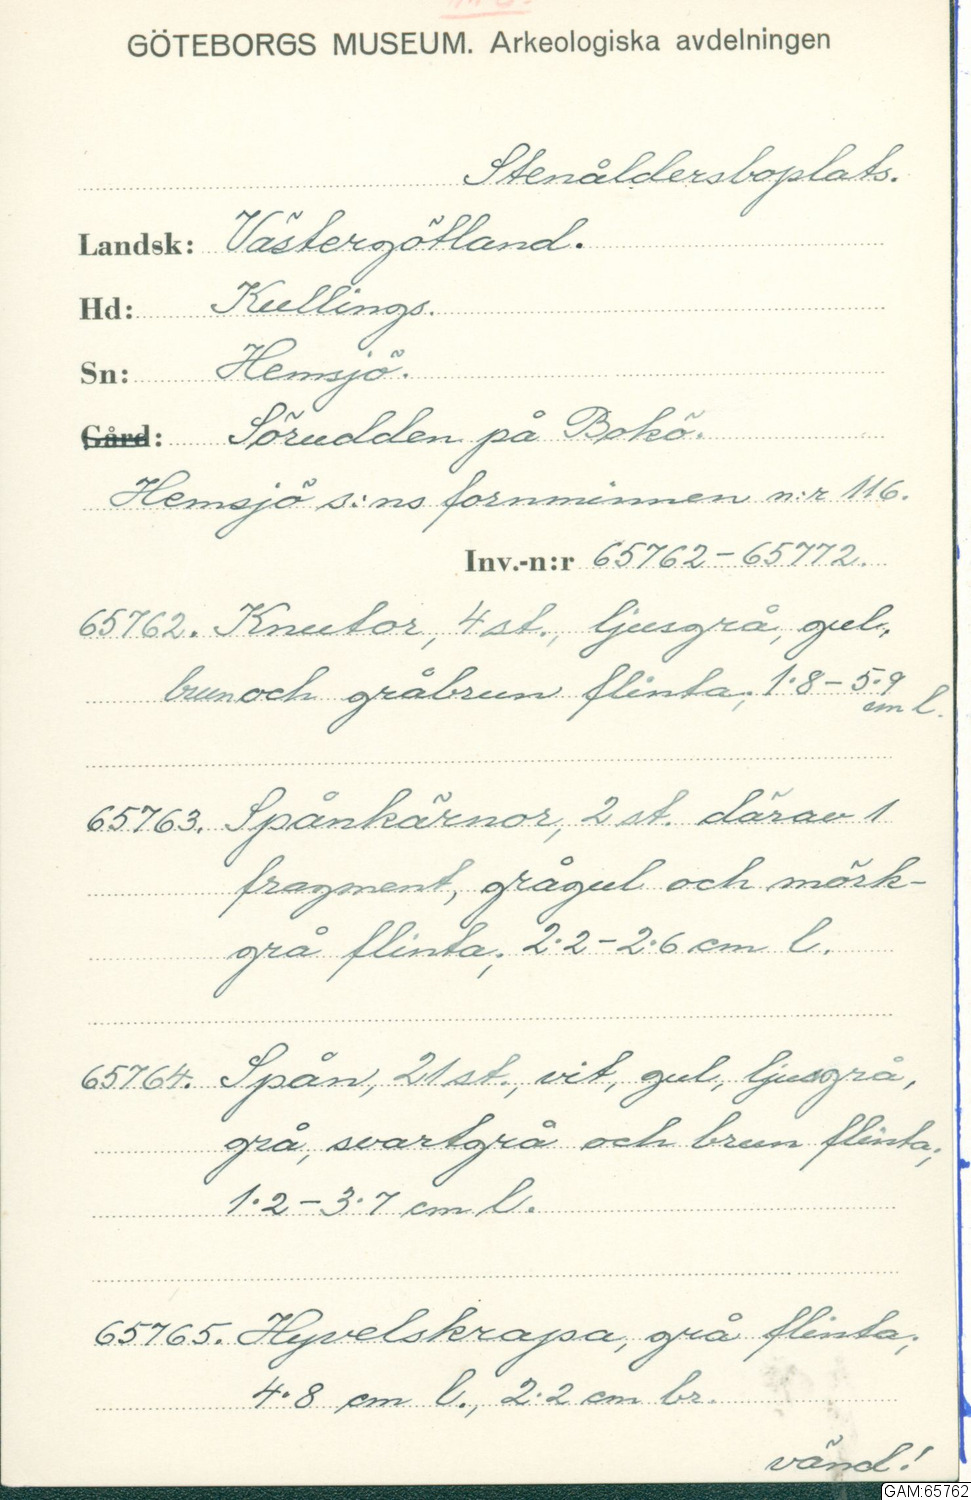 GÖTEBORGS MUSEUM. Arkeologiska avdelningen
Stenåldersboplats.
Landsk: Västergötland.
Hd: Kullings.
Sn: Hemsjö.
Gård: Sörudden på Bokö.
Hemsjö s:ns fornminnen n:r 116.
Inv.-n:r 65762-65772.
65762. Knutor, 4 st., ljusgrå, gul,
brun och gråbrun flinta; 1·8-5·9
cm l.
65763. Spånkärnor, 2 st. därav 1
fragment, grågul och mörk-
grå flinta; 2·2-2·6 cm l.
65764. Spån, 21 st., vit, gul, ljusgrå,
grå, svartgrå och brun flinta;
1·2-3·7 cm l.
65765. Hyvelskrapa, grå flinta;
4·8 cm l., 2·2 cm br.
vänd!
GAM:65762